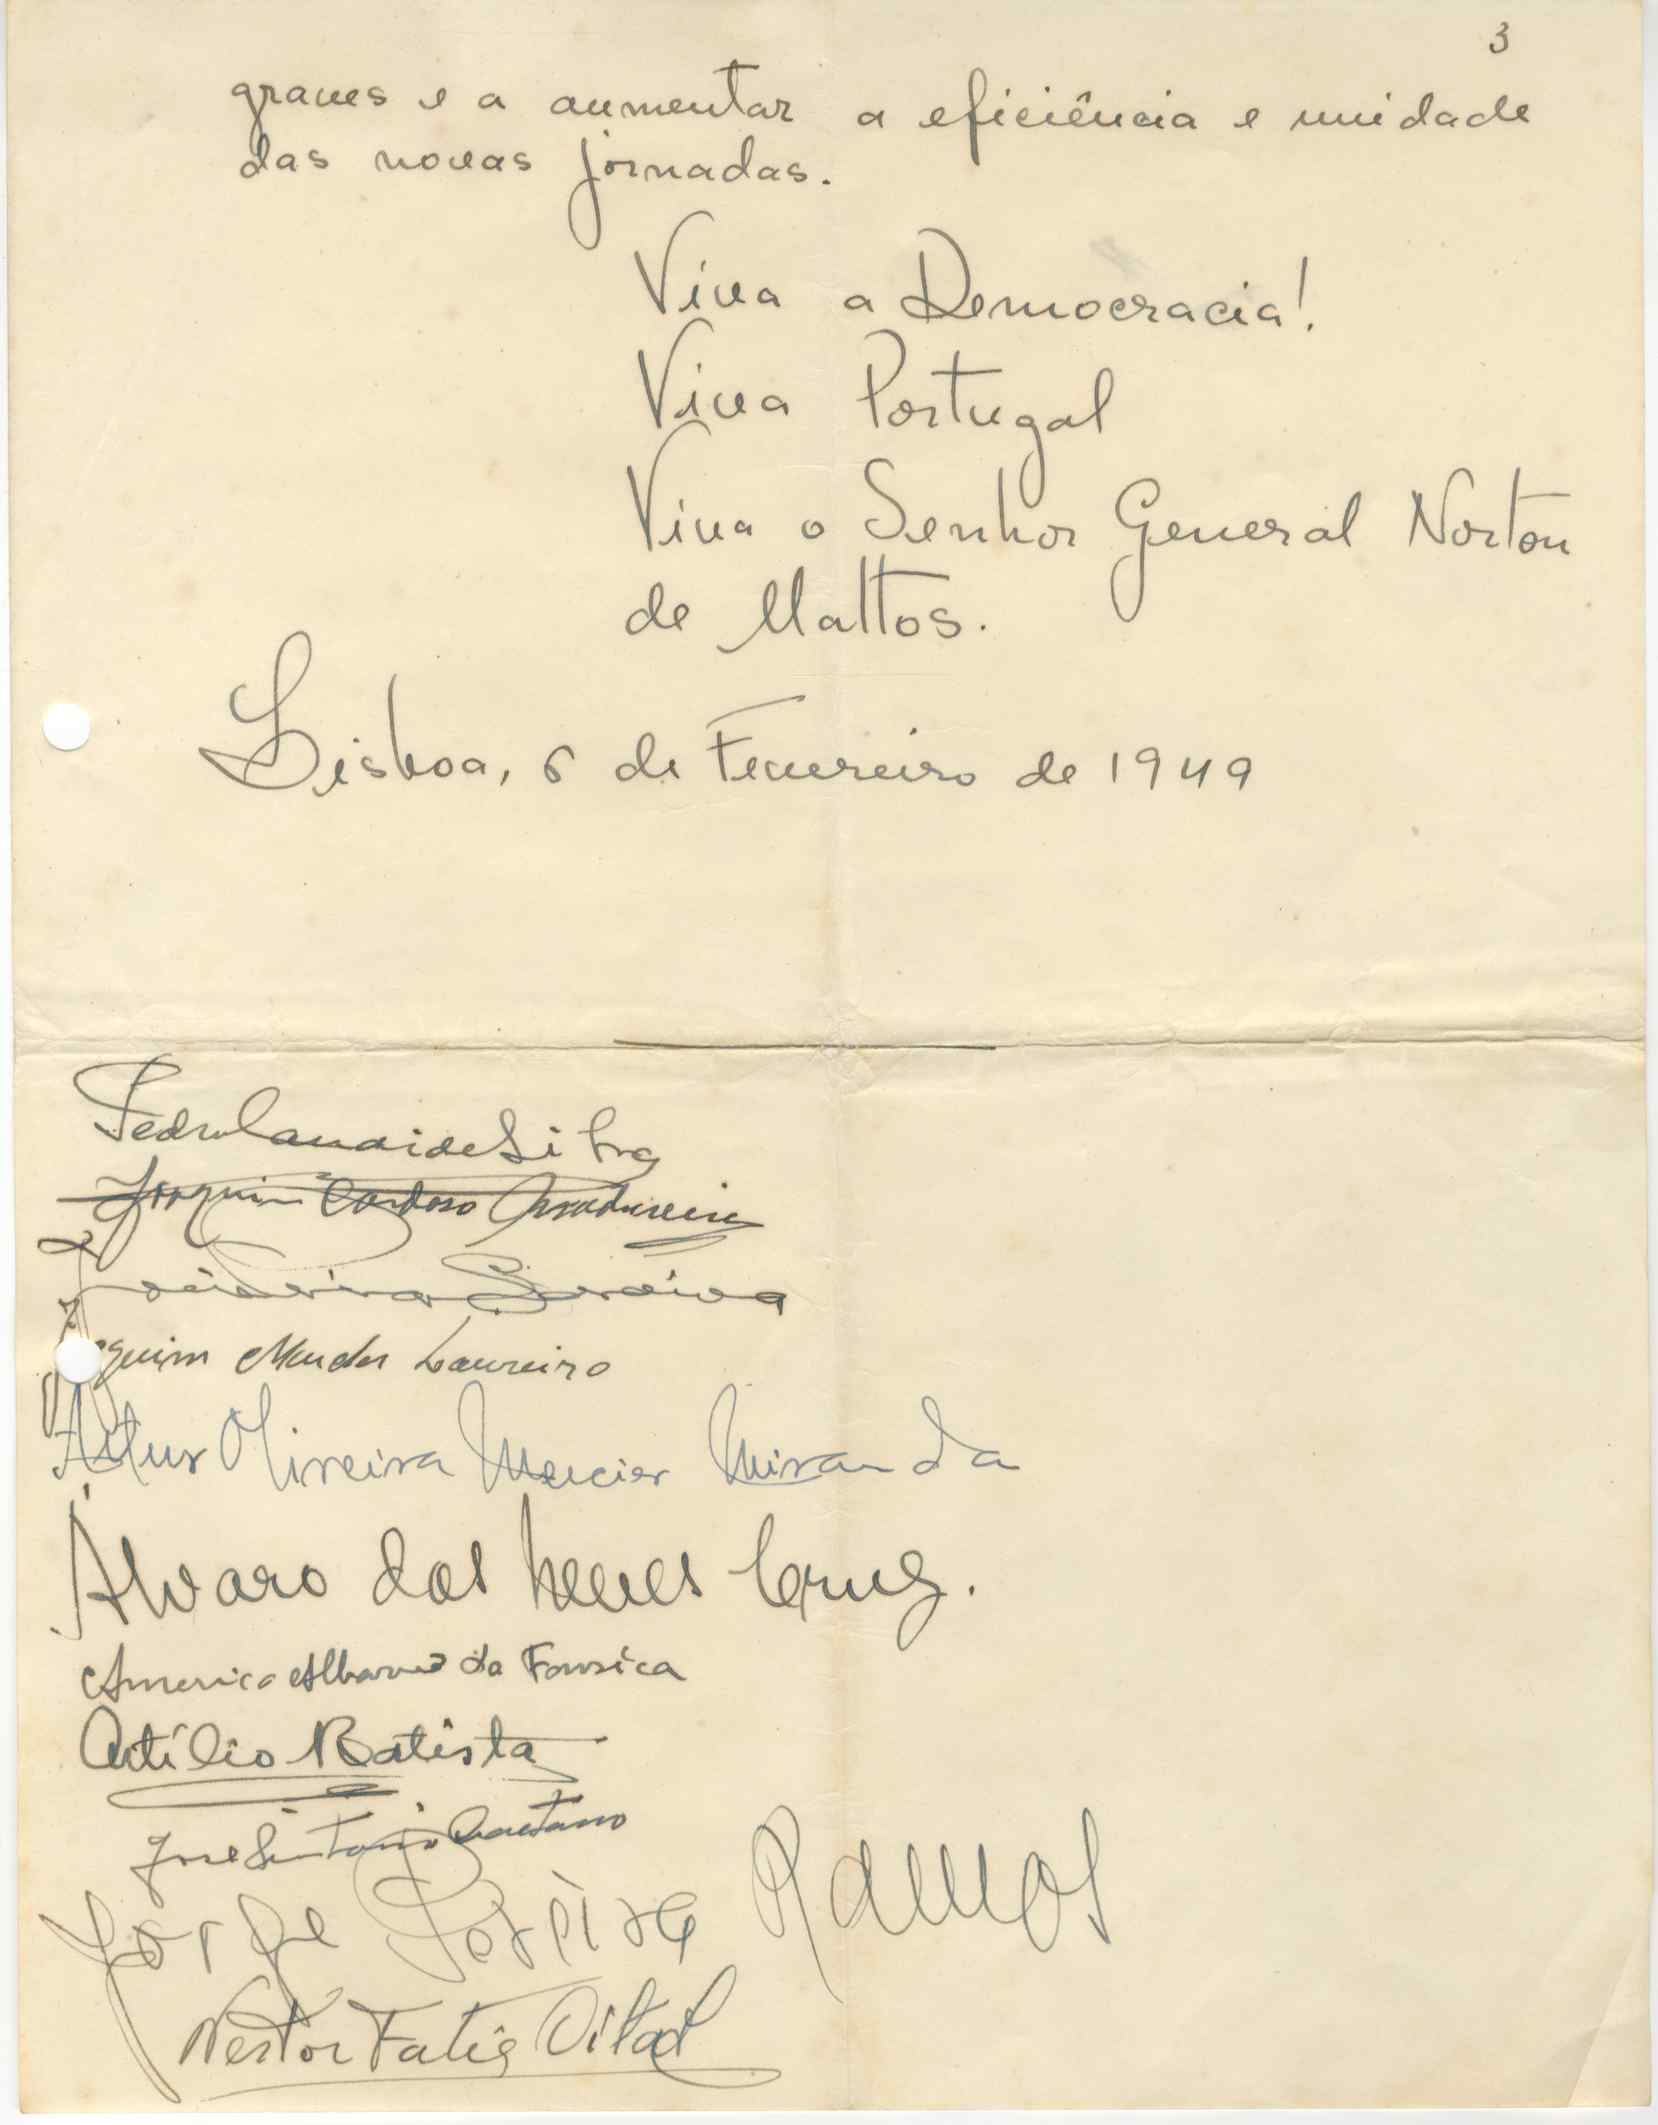 3
graves e a aumentar a eficiência e unidade
das novas jornadas.
Viva a Democracia!
Viva Portugal
Viva o Senhor General Norton
de Mattos.
Lisboa, 6 de Fevereiro de 1949
Joaquim Cardoso Madureira
Joaquim Mendes Loureiro
Artur Oliveira Mercier Miranda
Álvaro das Neves Cruz.
Americo da Fonseca
Atílio Batista
José Caetano
Jorge Pereira Ramos
Nestor Vital